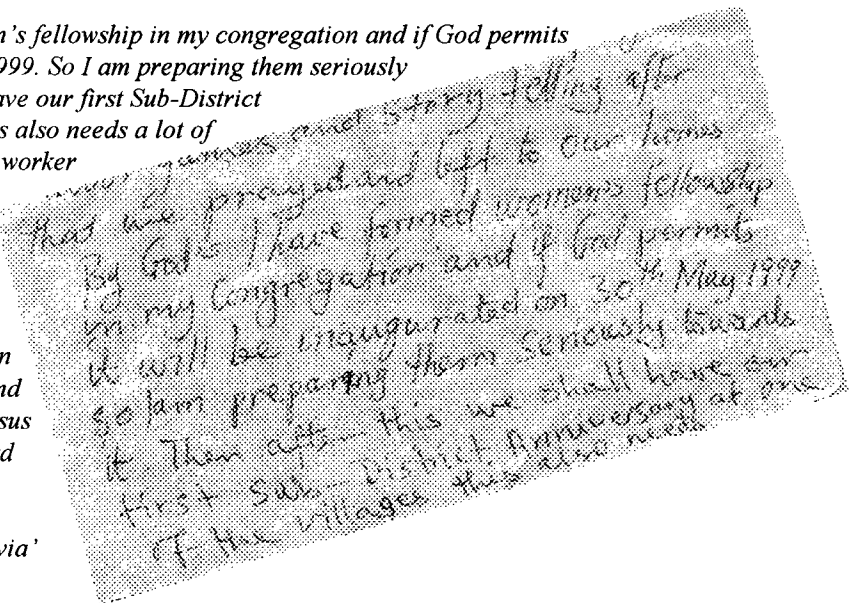 n's fellowship in my congregation and if God permits
999. So I am preparing them seriously
ave our first Sub-District
s also needs a lot of
worker
n
nd
sus
d
via'
games and story telling after
that we prayed and left to our homes
By God's I have formed women's fellowship
in my Congregation and if God permits
it will be inaugurated on 30th May 1999
So I am preparing them seriously towards
it. Then after this we shall have our
first Sub-District Anniversary at one
of the villages this also needs